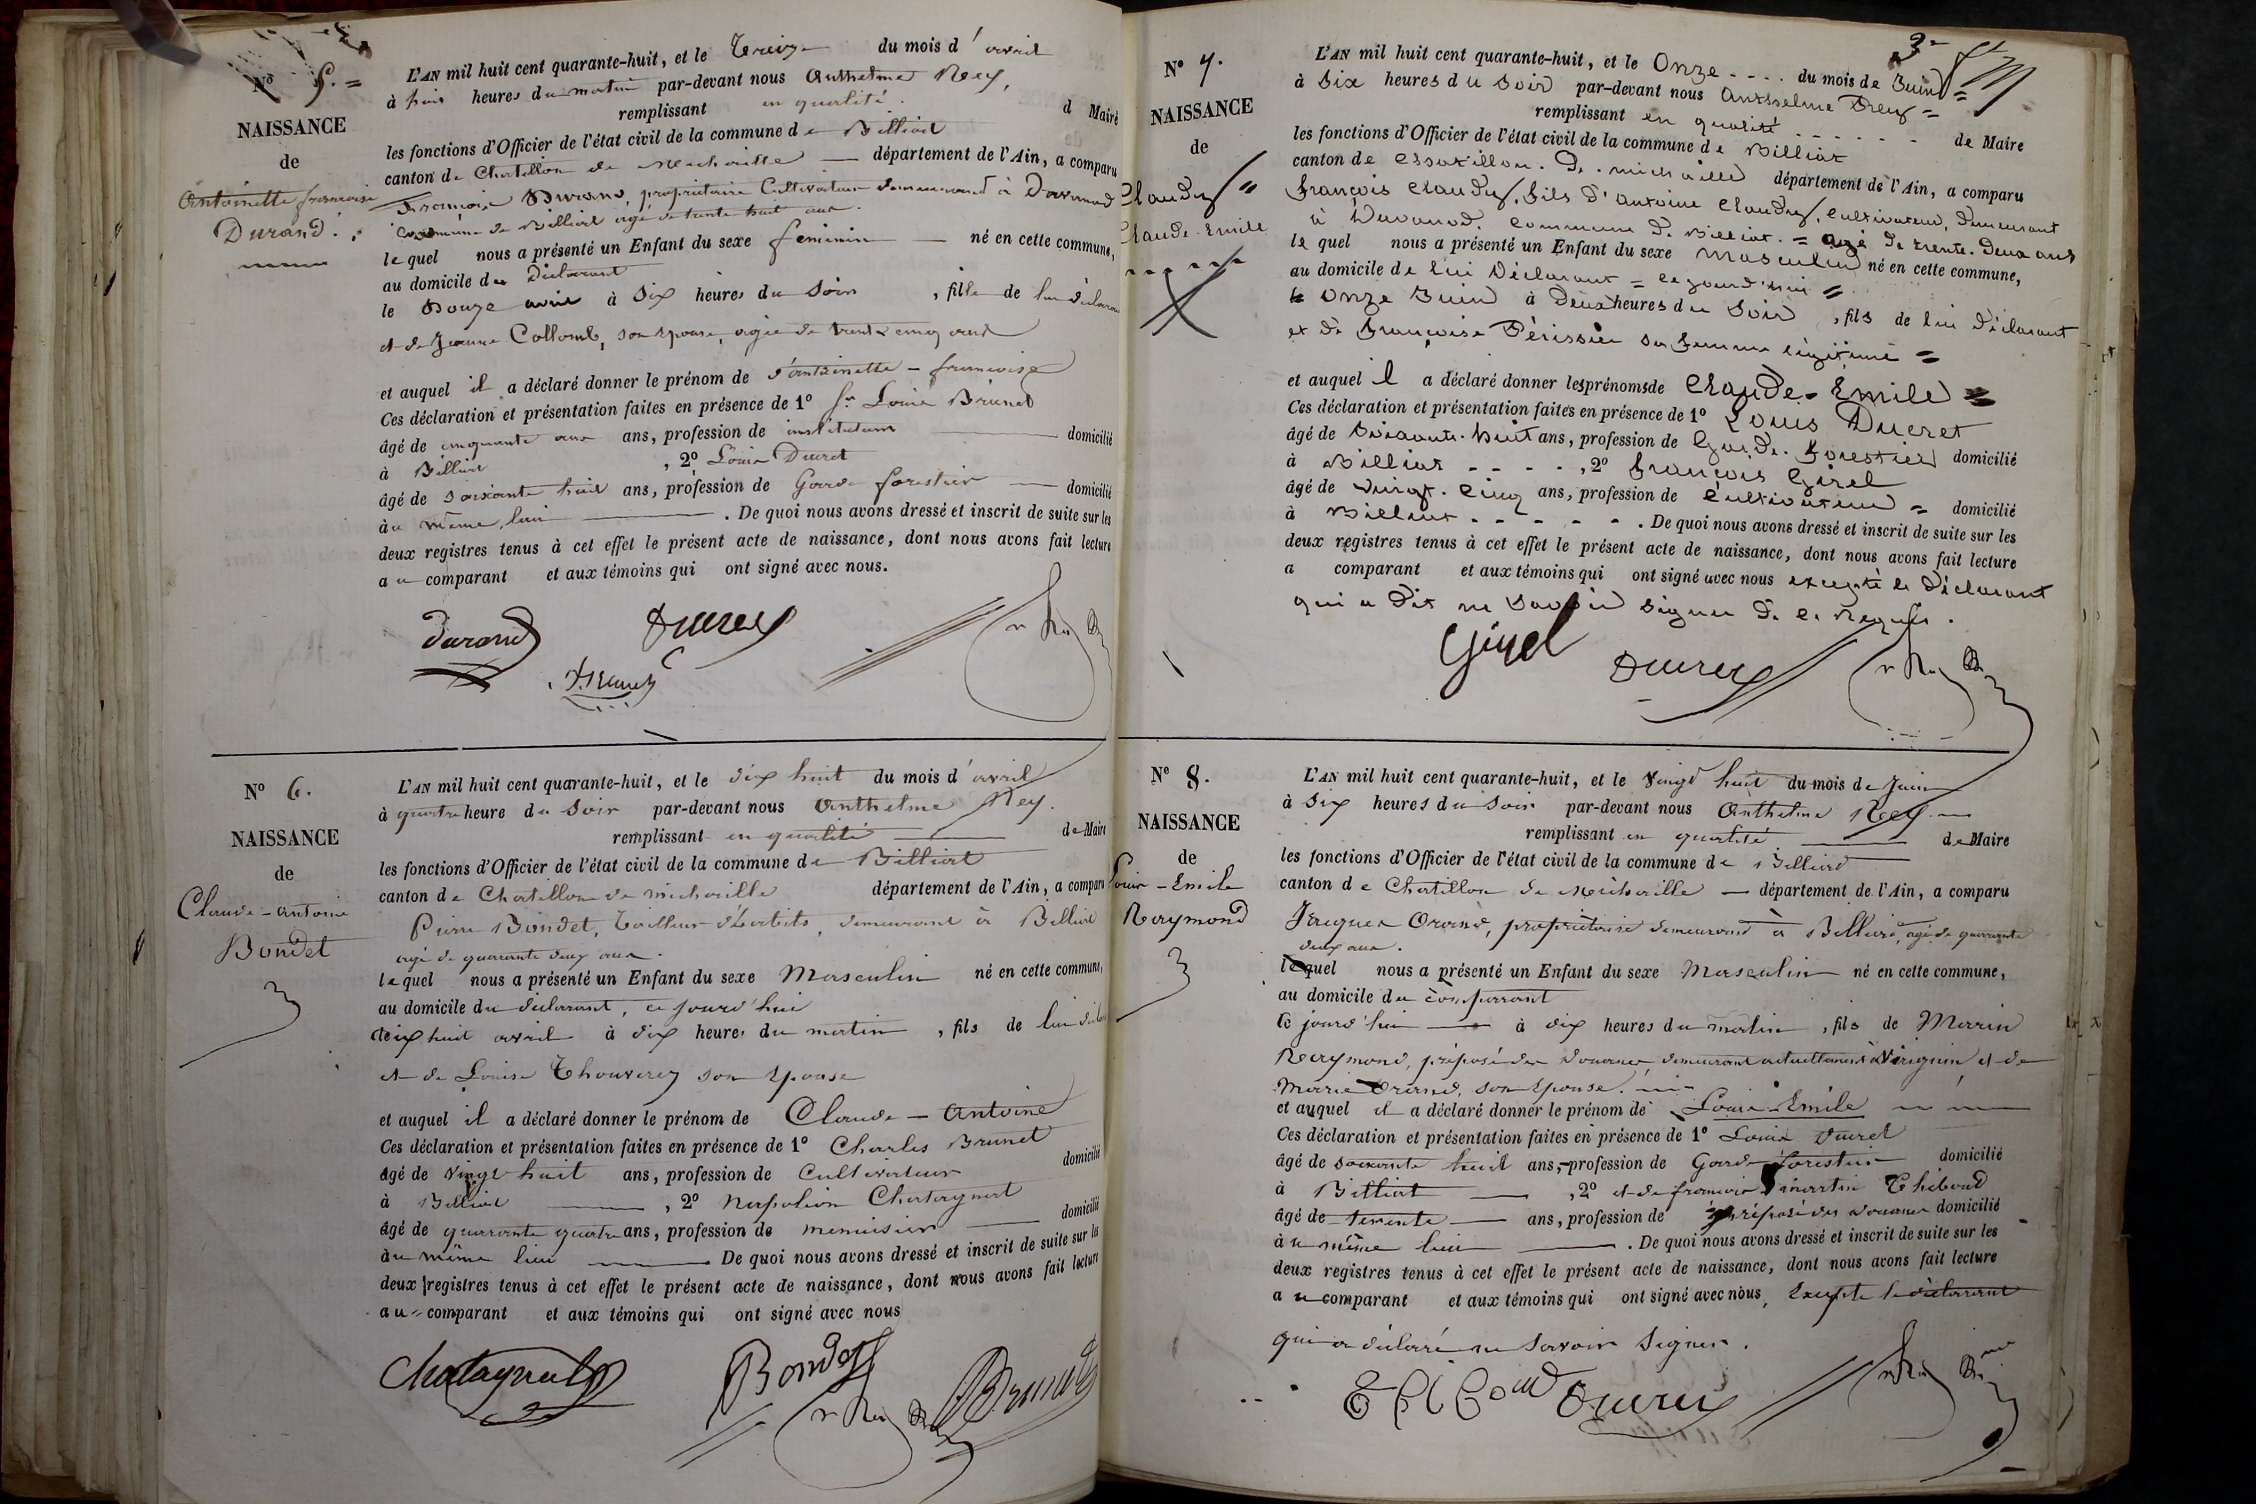 Nº 5. =
NAISSANCE
de
Antoinette françoise
Durand.
L'AN mil huit cent quarante-huit, et le Treize du mois d'avril
à huit heures du matin par-devant nous Anthelme Rey,
remplissant en qualité de Maire
les fonctions d'Officier de l'état civil de la commune de Billiat
canton de Chatillon de michaille — département de l'Ain, a comparu
François Durand, propriétaire Cultivateur demeurant à Davanod
Commune de Billiat agé de trente huit ans.
lequel nous a présenté un Enfant du sexe feminin — né en cette commune,
au domicile du Déclarant
le Douze avril à Six heures du Soir, fille de lui déclarant
et de Jeanne Collomb, son épouse, agée de trente cinq ans
et auquel il a déclaré donner le prénom de d'antoinette - françoise
Ces déclaration et présentation faites en présence de 1º Sr Louis Brunet
âgé de cinquante ans ans, profession de instituteur — domicilié
à Billiat, 2º Louis Ducret
âgé de soixante huit ans, profession de Garde forestier — domicilié
àu même lieu — . De quoi nous avons dressé et inscrit de suite sur les
deux registres tenus à cet effet le présent acte de naissance, dont nous avons fait lecture
au comparant et aux témoins qui ont signé avec nous.
Durand Ducret
Brunet
Nº 6.
NAISSANCE
de
Claude - antoine
Bondet
L'AN mil huit cent quarante-huit, et le dix huit du mois d'avril
à quatre heure du Soir par-devant nous Anthelme Rey.
remplissant en qualité — de Maire
les fonctions d'Officier de l'état civil de la commune de Billiat
canton de Chatillon de michaille département de l'Ain, a comparu
Pierre Bondet, Tailleur d'habits, demeurant à Billiat
agé de quarante deux ans.
lequel nous a présenté un Enfant du sexe Masculin né en cette commune,
au domicile du déclarant, ce jourd'hui
dix huit avril à dix heures du matin, fils de lui
et de Louise Thouverey son épouse
et auquel il a déclaré donner le prénom de Claude — Antoine
Ces déclaration et présentation faites en présence de 1º Charles Brunet
âgé de vingt huit ans, profession de Cultivateur domicilié
à Billiat —, 2º Napoléon Chatagnat
âgé de quarante quatre ans, profession de menuisier — domicilié
àu même lieu — De quoi nous avons dressé et inscrit de suite sur les
deux registres tenus à cet effet le présent acte de naissance, dont nous avons fait lecture
au comparant et aux témoins qui ont signé avec nous
Chatagnat Bondet Brunet
3e
Nº 7.
NAISSANCE
de
Claudy
Claude-Emile
L'AN mil huit cent quarante-huit, et le Onze - - - - du mois de Juin =
à Six heures du Soir par-devant nous Anthelme Rey =
remplissant en qualité - - - - - - de Maire
les fonctions d'Officier de l'état civil de la commune de Billiat
canton de Chatillon. De. michaille département de l'Ain, a comparu
françois Claudy, fils d'antoine Claudy, Cultivateur, demeurant
à Davanod. Commune de Billiat. = agé de trente-deux ans
lequel nous a présenté un Enfant du sexe masculin né en cette commune,
au domicile de lui Déclarant = ce jourd'hui =
le Onze Juin à Deux heures du Soir, fils de lui Déclarant
et de françoise Périssier sa femme légitime =
et auquel il a déclaré donner les prénoms de Claude - Emile =
Ces déclaration et présentation faites en présence de 1º Louis Ducret
âgé de Soixante-huit ans, profession de Garde. Forestier domicilié
à Billiat - - - -, 2º François Girel
âgé de vingt-cinq ans, profession de Cultivateur = domicilié
à Billiat - - - - - . De quoi nous avons dressé et inscrit de suite sur les
deux registres tenus à cet effet le présent acte de naissance, dont nous avons fait lecture
a comparant et aux témoins qui ont signé avec nous excepté le Déclarant
qui a dit ne savoir signer de ce requis.
Girel Ducret
Nº 8.
NAISSANCE
de
Louis - Emile
Raymond
L'AN mil huit cent quarante-huit, et le Vingt huit du mois de Juin
à Six heures du soir par-devant nous Anthelme Rey —
remplissant en qualité — de Maire
les fonctions d'Officier de l'état civil de la commune de Billiat
canton de Chatillon de michaille — département de l'Ain, a comparu
Jacques, propriétaire demeurant à Billiat, agé de quarante
deux ans.
lequel nous a présenté un Enfant du sexe Masculin né en cette commune,
au domicile du comparant
ce jourd'hui — à dix heures du matin, fils de Marin
Raymond, préposé des Douanes, demeurant actuellement à et de
Marie, son épouse.
et auquel il a déclaré donner le prénom de Louis-Emile
Ces déclaration et présentation faites en présence de 1º Louis Ducret
âgé de soixante huit ans, profession de Garde forestier domicilié
à Billiat —, 2º et de françois martin Thiboud
âgé de trente — ans, profession de préposé des Douanes domicilié
àu même lieu — . De quoi nous avons dressé et inscrit de suite sur les
deux registres tenus à cet effet le présent acte de naissance, dont nous avons fait lecture
au comparant et aux témoins qui ont signé avec nous, Excepté le déclarant
qui a déclaré ne savoir signer.
Thiboud Ducret